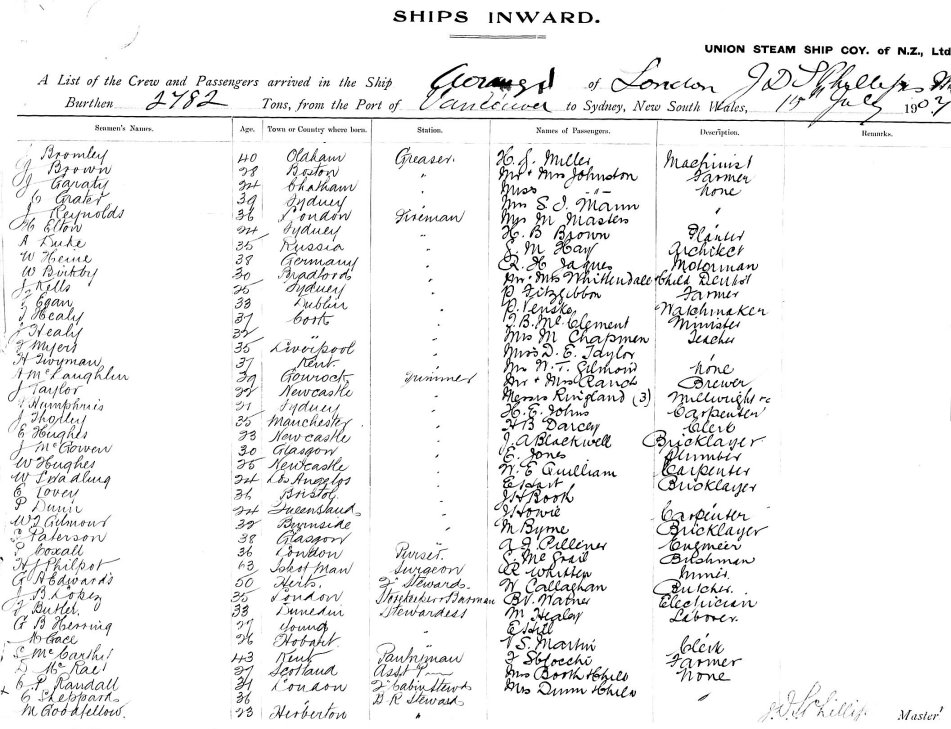 SHIPS INWARD.
UNION STEAM SHIP COY. of N.Z., Ltd
A List of the Crew and Passengers arrived in the Ship Aorangi of London J D S Phillips
Burthen 2782 Tons, from the Port of Vancouver to Sydney, New South Wales, 15th July 1907
Seamen's Names. Age. Town or Country where born. Station. Names of Passengers. Description. Remarks.
J Bromley 40 Oldham Greaser. H. J. Miller Machinist
J Brown 28 Boston " Mr & Mrs Johnston Farmer
J Garaty 24 Chatham " Miss -"- None
C Grater 39 Sydney " Mrs S. J. Mann
J Reynolds 36 London Fireman Mrs M Masters "
H Elton 24 Sydney " H. B Brown Planter
A Duke 35 Russia " M Hay Architect
W Heine 38 Germany " R. H Jaques Motorman
W Birkby 30 Bradford " Mr & Mrs Whittendale & Child Dentist
J Kells 25 Sydney " P Fitzgibbon Farmer
Egan 33 Dublin " P. Venske Watchmaker
J Healy 37 Cork " J. B. McClement Minister
J Healy 32 " Mrs M Chapman Teacher
J Myers 35 Liverpool " Mrs D. E. Taylor
H Twyman 37 Kent " Mr N. T. Gilmour None
A McLaughlin 39 Gourock Trimmer Mr & Mrs Ranch Brewer
J Taylor 22 Newcastle " Messrs Ringland (3) Millwright &c
Humphris 21 Sydney " H. E. Johns Carpenter
J Thorley 35 Manchester " H B Darcey Clerk
E Hughes 23 Newcastle " J A Blackwell Bricklayer
J McGowen 30 Glasgow " E. Jones Plumber
W Hughes 25 Newcastle " W. E Quilliam Carpenter
W Spadling 24 Los Angelos " E Hart Bricklayer
E Lovey 36 Bristol " J H Rook
P Dunn 24 Queensland " J Howie Carpenter
W J Gilmour 32 Burnside " M Byrne Bricklayer
S Paterson 38 Glasgow " A. J. Pilliner Engineer
P Coxall 36 London Purser. E. McGrail Bushman
H J Philpot 43 Isle of Man Surgeon R Whitten Miner
G A Edwards 50 Herts. Stewards W Callaghan Butcher
J B Lopez 35 London Storekeeper & Barman Electrician
J Butler 33 Dunedin Stewardess M Healey Laborer.
G B Herring 27 Young " E Hill
M Gace 26 Hobart " S. Martin Clerk
S McCarthy 43 Kent Pantryman Farmer
D McRae 27 Scotland Asst " Mrs Booth & Child None
C P Randall 31 London Cabin Stewd Mrs Dunn & Child
x E Sheppard 36 " B R Steward
M Goodfellow 23 Herberton "
J. D. S. Phillips Master